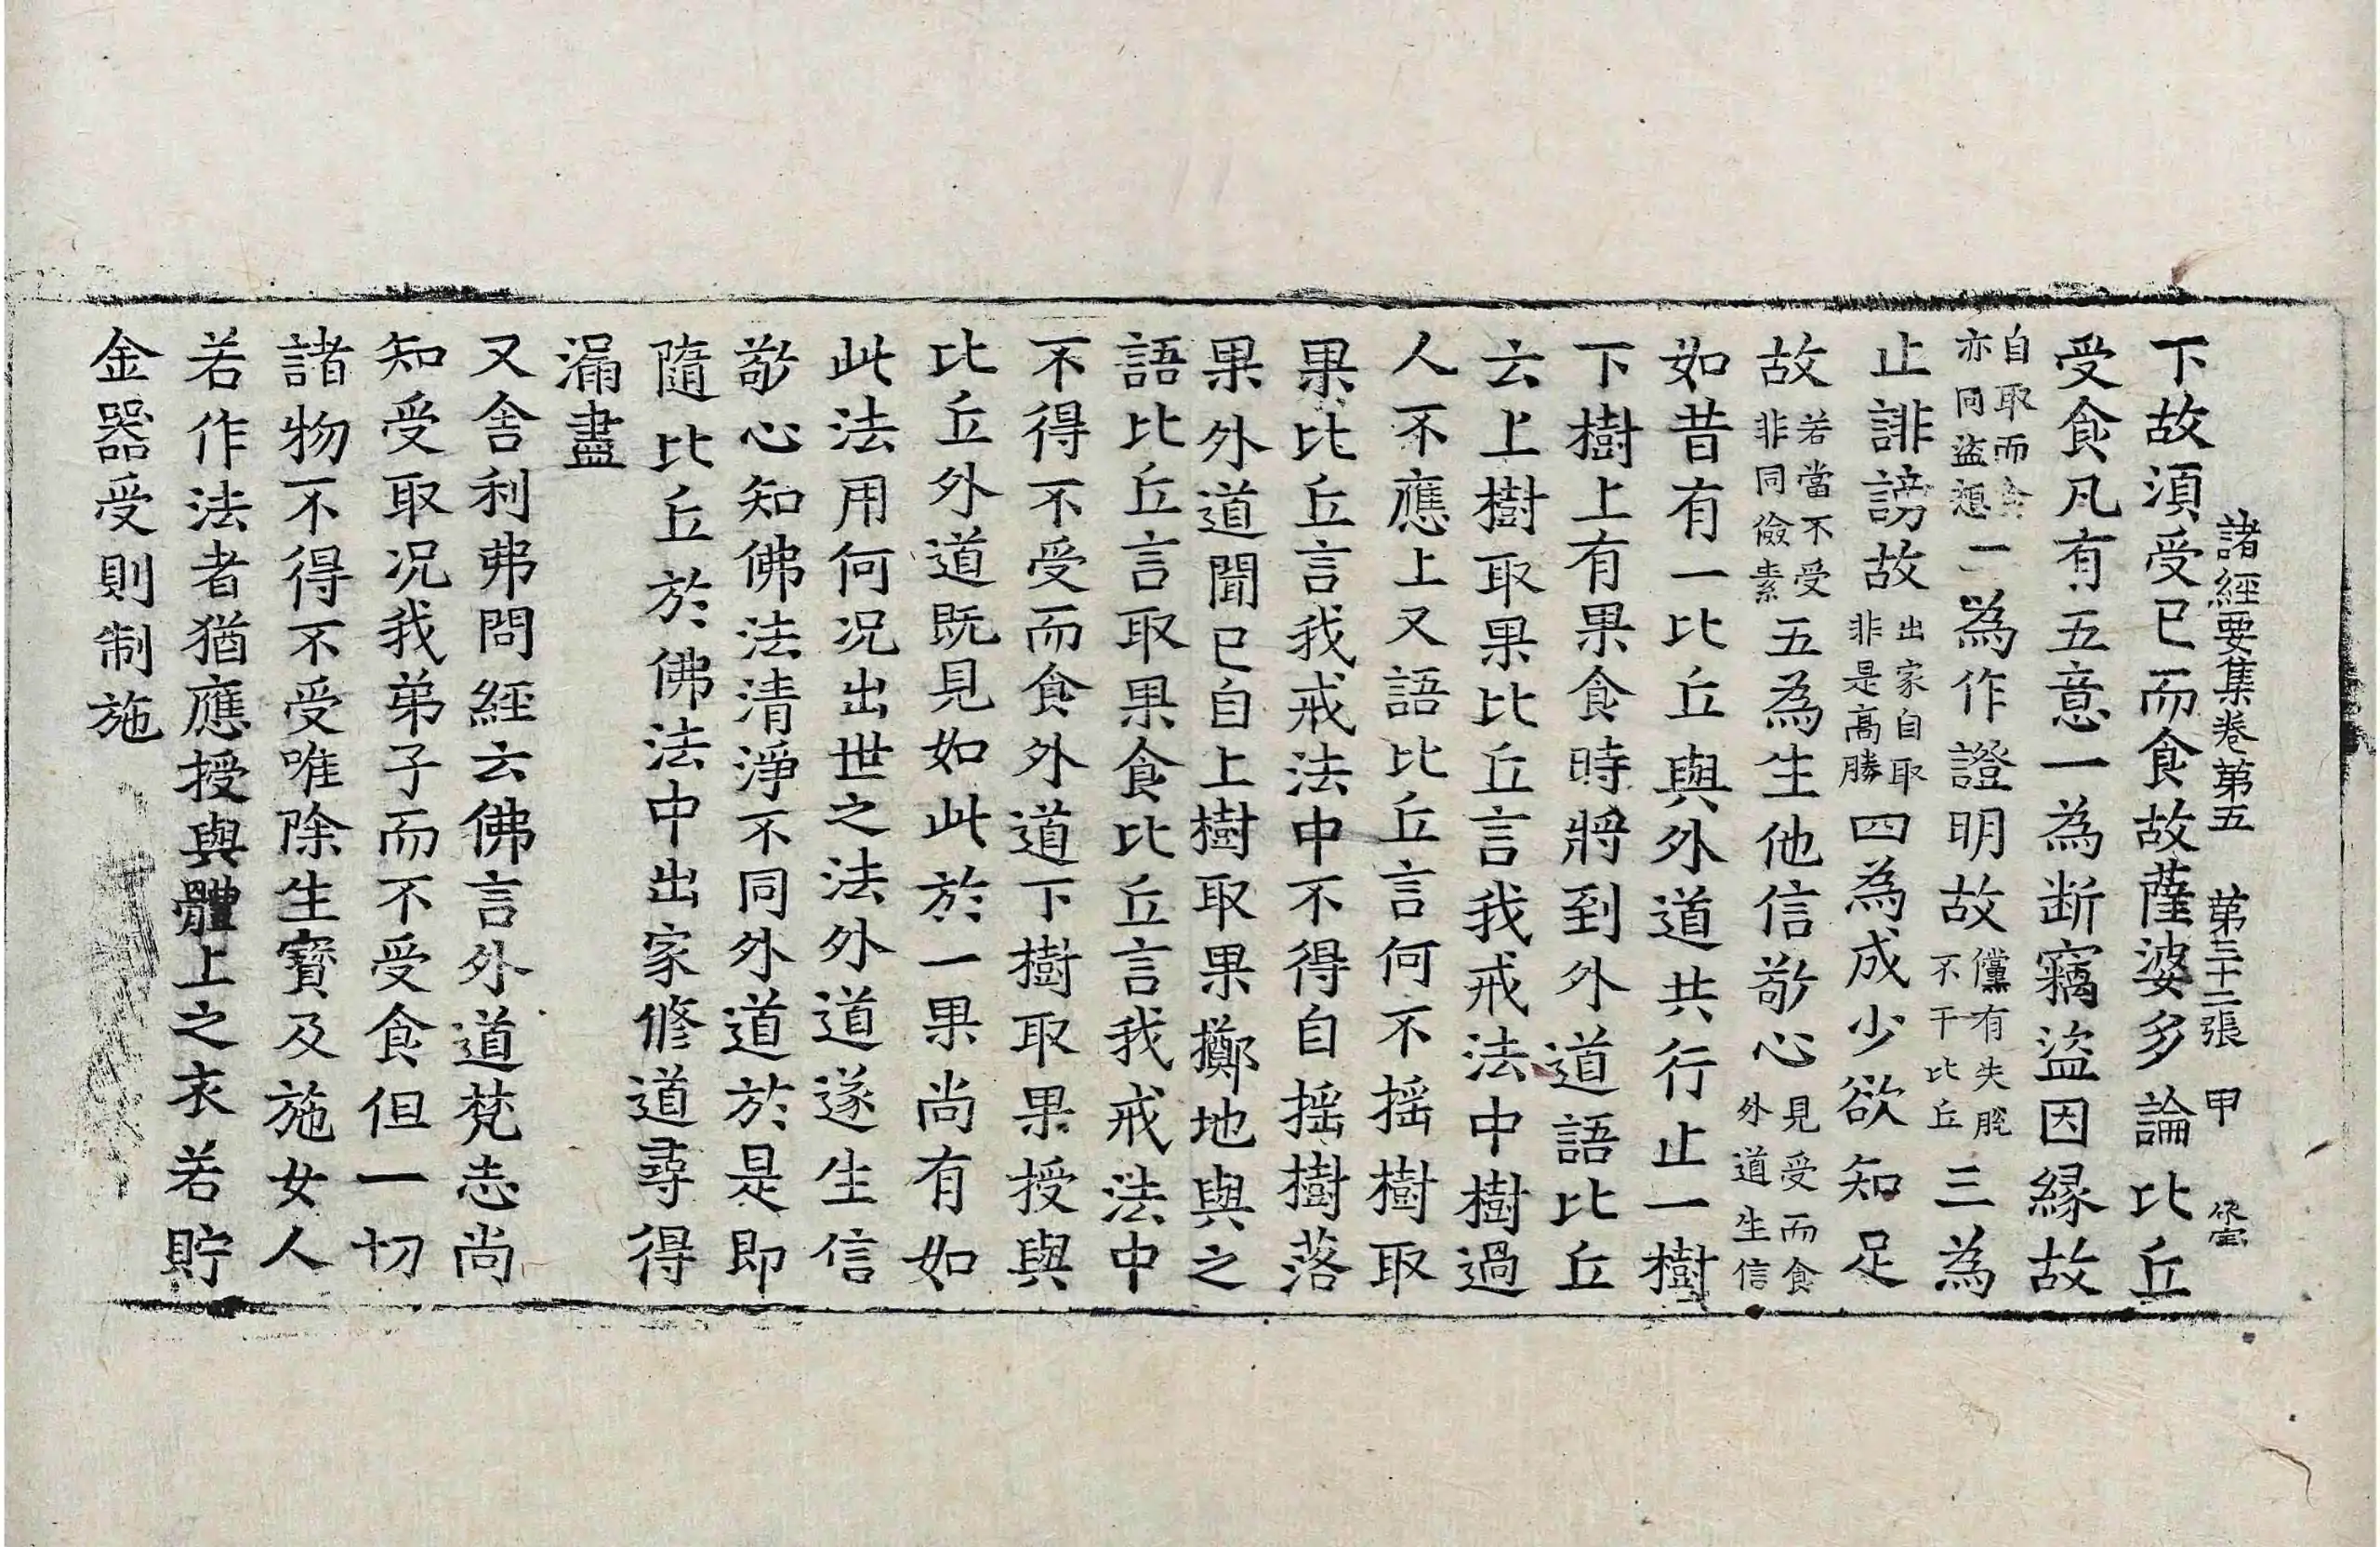 諸經要集卷第五　第三十二張　甲
下故湏受已而食故薩婆多論比丘
受食凡有五意一為断竊盜因緣故
自取而食亦同盜想二為作證明故儻有失脫不干比丘三為
止誹謗故出家自取非是高勝四為成少欲知足
故若當不受非同儉素五為生他信敬心見受而食外道生信
如昔有一比丘與外道共行止一樹
下樹上有果食時將到外道語比丘
云上樹取果比丘言我戒法中樹過
人不應上又語比丘言何不搖樹取
果比丘言我戒法中不得自搖樹落
果外道聞已自上樹取果擲地與之
語比丘言取果食比丘言我戒法中
不得不受而食外道下樹取果授與
比丘外道既見如此於一果尚有如
此法用何况出世之法外道遂生信
敬心知佛法清淨不同外道於是即
隨比丘於佛法中出家修道尋得
漏盡
又舍利弗問經云佛言外道梵志尚
知受取况我弟子而不受食但一切
諸物不得不受唯除生寶及施女人
若作法者猶應授與體上之衣若貯
金器受則制施